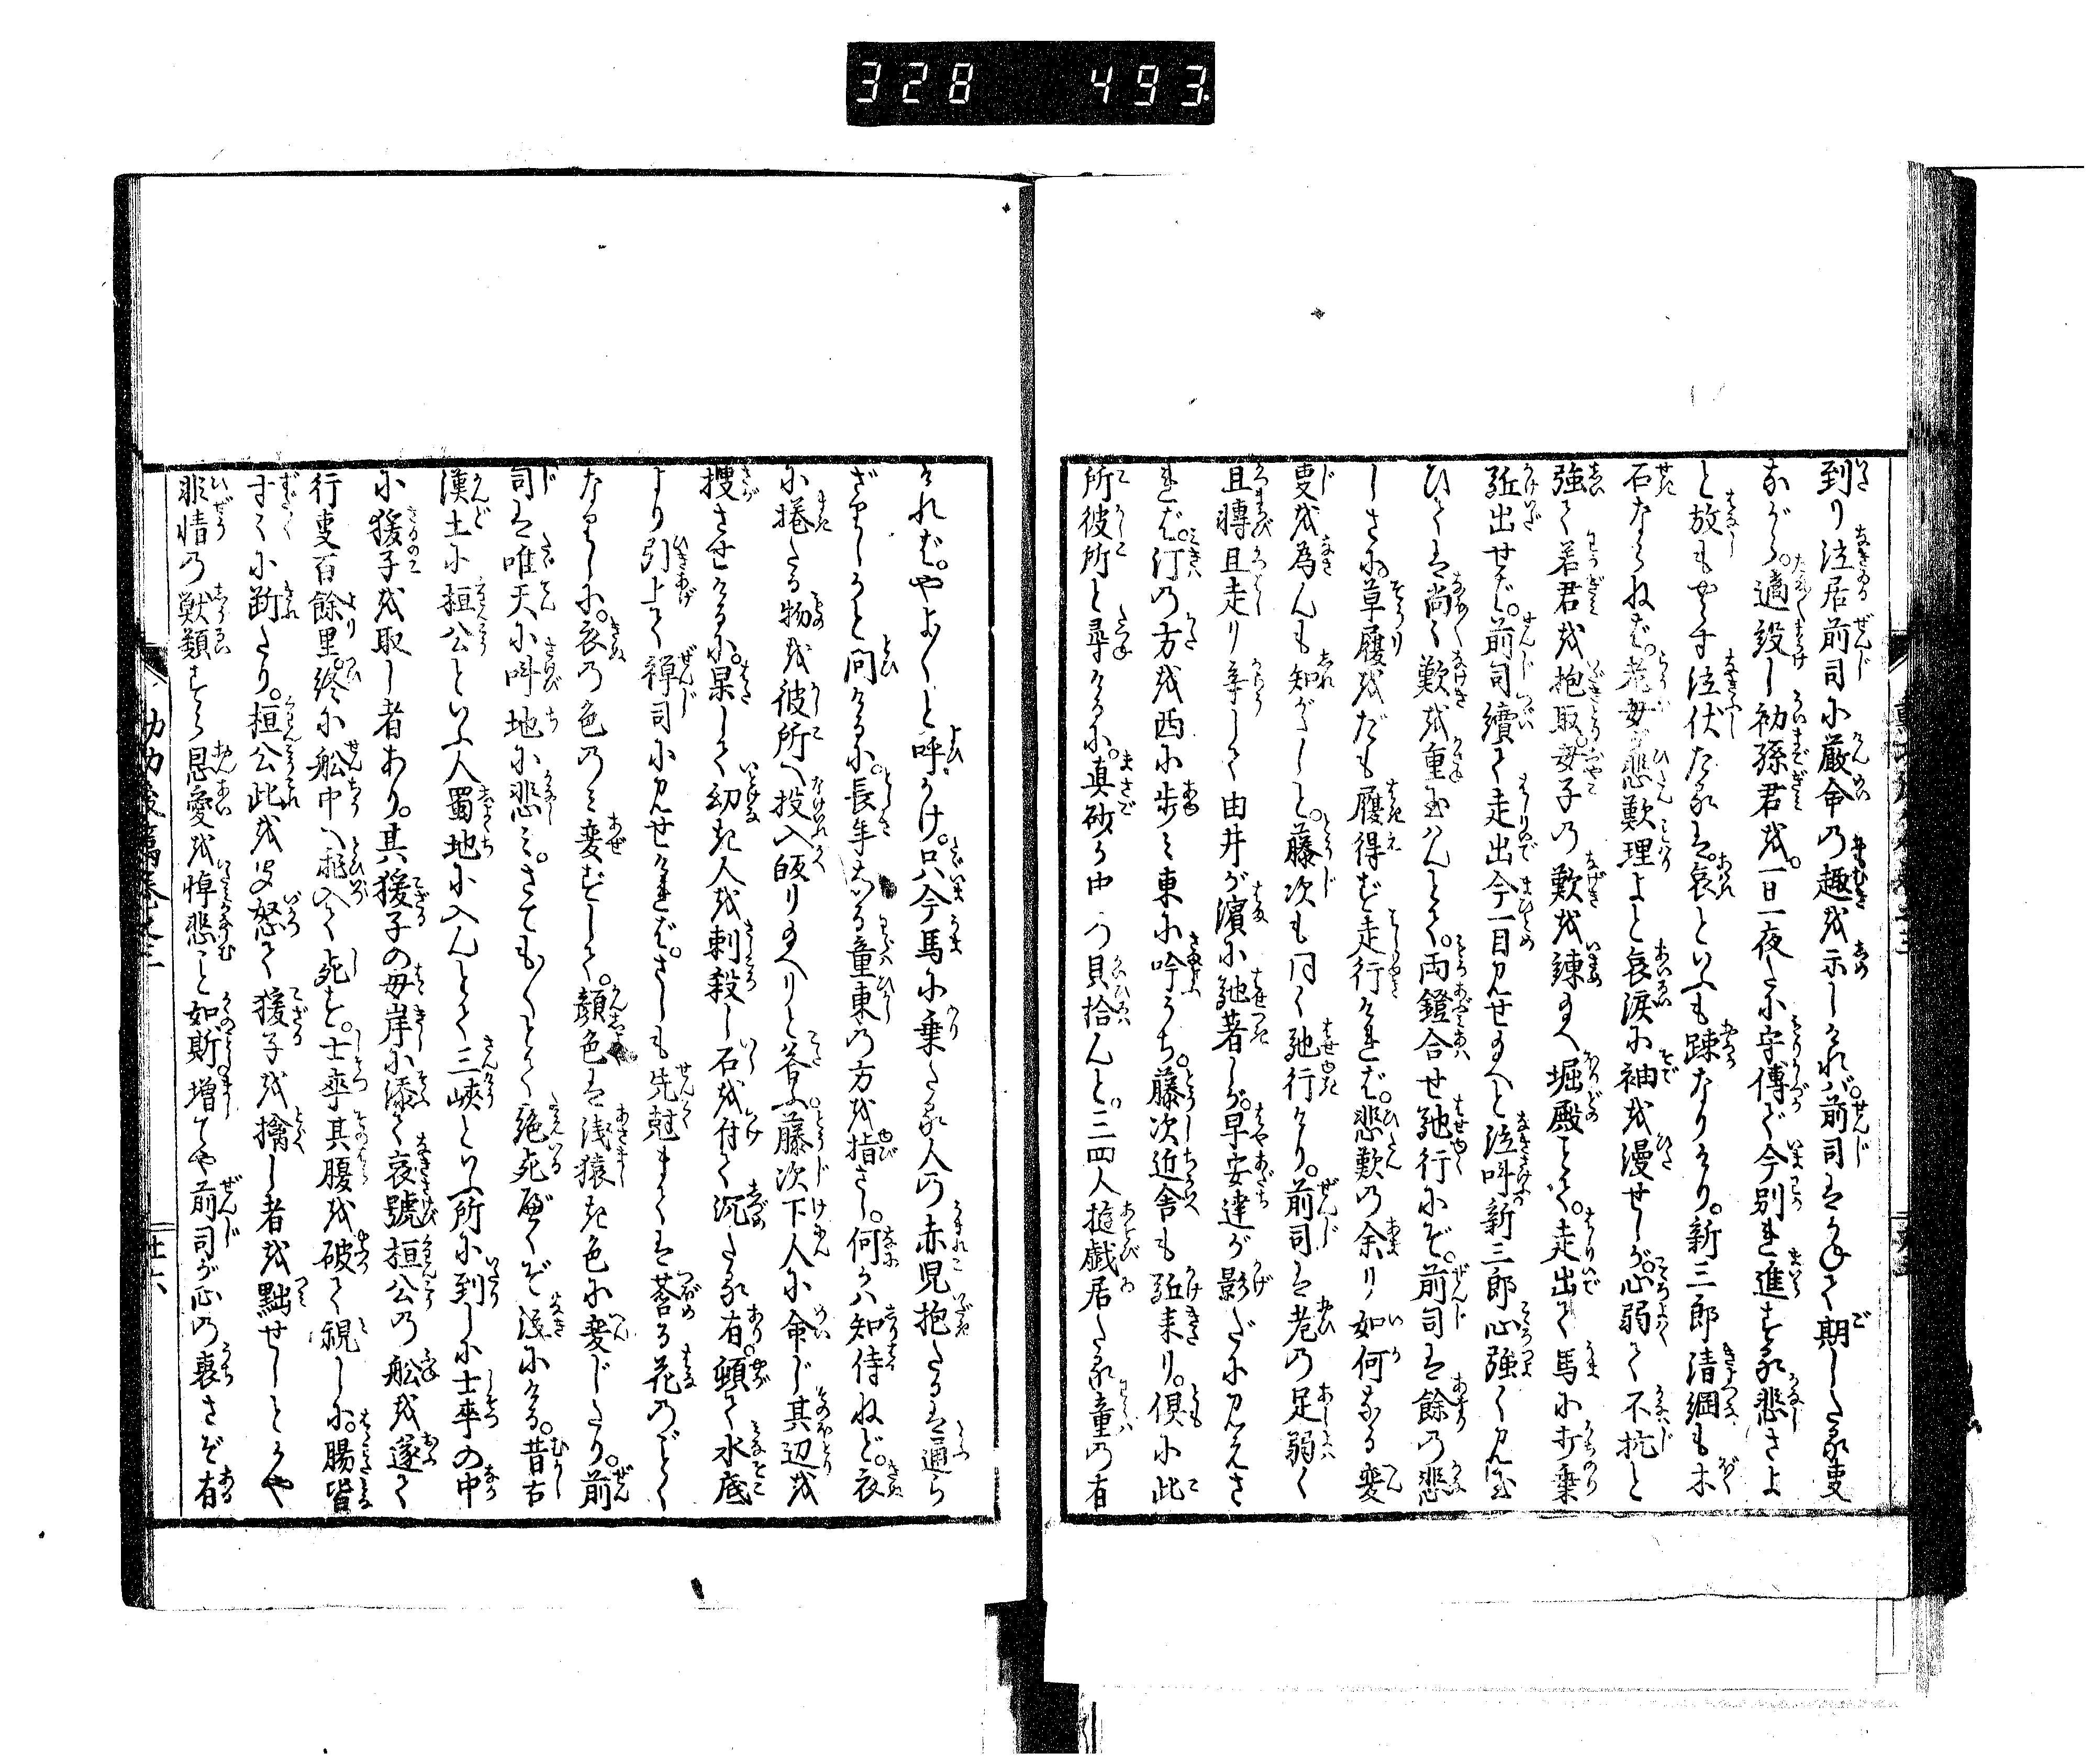 328 493.
到り泣居前司に厳命の趣を示しければ。前司はかねて期したる事
ながら。適設し初孫君を。一日一夜だに守傅で今別れ進する悲さよ
と放もやらず泣伏たるは。哀といふも踈なりけり。新三郎清綱も木
石ならねば。老母が悲歎理よと哀涙に袖を漫せしが。心弱くて不抗と
強て若君を抱取。母子の歎を諫玉へ堀殿とて。走出て馬に打乗
駈出せば。前司續て走出今一目見せ玉へと泣叫新三郎心強く見玉
ひては尚々歎を重玉はんとて。両鐙合せ馳行にぞ。前司は餘の悲
しさに。草履をだも履得ず走行ければ。悲歎の余り如何なる変
事を為んも知がたしと。藤次も同く馳行けり。前司は老の足弱く
且轉且走り辛して由井が濱に馳著しが。早安達が影だに見えざ
れば。汀の方を西に歩み東に吟うち。藤次近舎も駈来り。倶に此
所彼所と尋けるに。真砂の中の貝拾んと。三四人遊戯居たる童の有
ければ。やよ〳〵と呼かけ。只今馬に乗たる人の赤児抱たるは通ら
ざりしかと問けるに。長年なる童東の方を指さし。何かは知侍ねど。衣
に捲たる物を彼所へ投入皈り玉へりと答ふ。藤次下人に命じ其辺を
捜させけるに。果して幼き人を刺殺し石を付て沉たる有。頓て水底
より引上て禅司に見せければ。さしも先尅までは莟る花のごとく
なりしに。衣の色のみ変ずして。顔色は浅猿き色に変じたり。前
司は唯天に叫地に悲み。さても〳〵とて絶死べくぞ泣にける。昔古
漢土に桓公といふ人蜀地に入んとて三峡といふ所に到しに士卒の中
に猨子を取し者あり。其猨子の母岸に添て哀號桓公の舩を遂て
行事百餘里。終に舩中へ飛入て死す。士卒其腹を破て視しに。腸皆
寸々に断たり。桓公此を聞怒て猨子を擒し者を黜せしとかや
非情の獣類すら恩愛を悼悲こと如斯増てや前司が心の裏さぞ有
幼
後篇巻之三
廿六